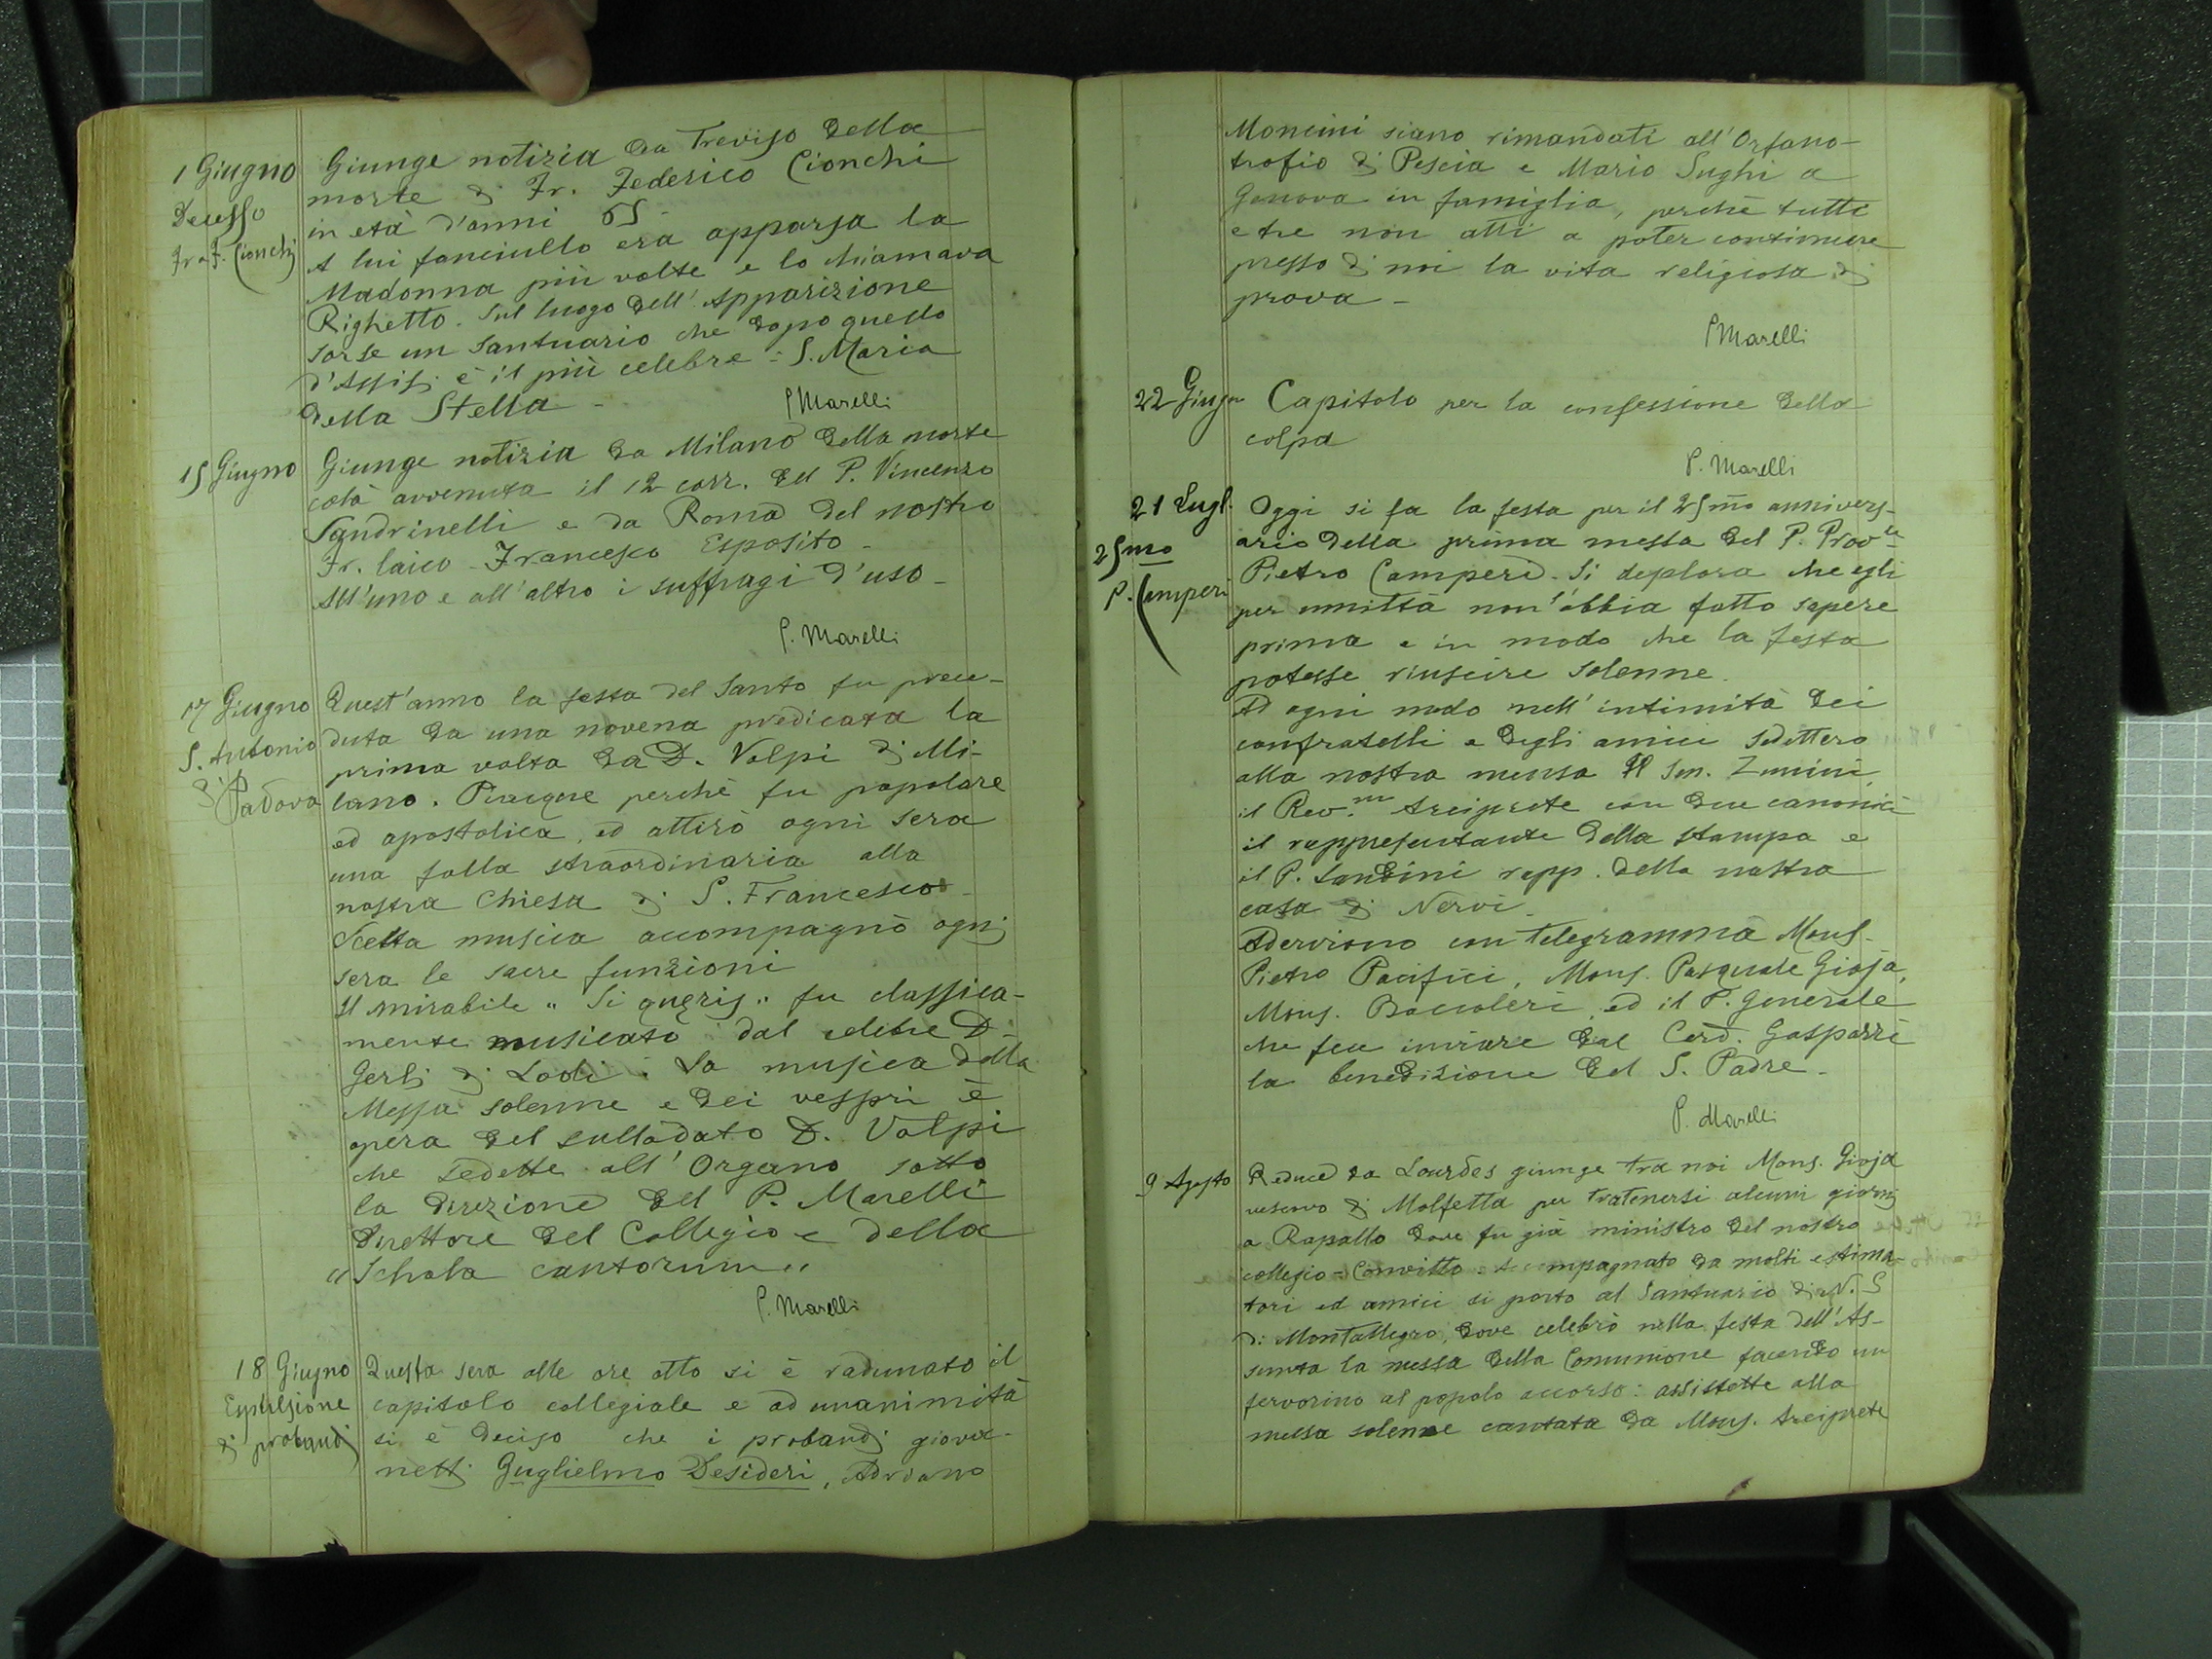 1 Giugno
Decesso
Fra F. Cionchi
Giunge notizia da Treviso della
morte di Fr. Federico Cionchi
in età d'anni 65-
A lui fanciullo era apparsa la
Madonna più volte e lo chiamava
Righetto. Sul luogo dell'Apparizione
sorse un Santuario che dopo quello
d'Assisi è il più celebre: S. Maria
della Stella -
P Marelli
15 Giugno
Giunge notizia da Milano della morte
colà avvenuta il 12 corr. del P. Vincenzo
Sandrinelli e da Roma del nostro
Fr. laico Francesco Esposito -
All'uno e all'altro i suffragi d'uso -
P. Marelli
17 Giugno
S. Antonio
di Padova
Quest'anno la festa del Santo fu prece-
duta da una novena predicata la
prima volta da D. Volpi di Mi-
lano. Piacque perchè fu popolare
ed apostolica, ed attirò ogni sera
una folla straordinaria alla
nostra Chiesa di S. Francesco -
Scelta musica accompagnò ogni
sera le sacre funzioni
Il mirabile "Si quæris" fu classica-
mente musicato dal celebre D.
Gerli di Lodi. La musica della
Messa solenne e dei vespri è
opera del sullodato D. Volpi
che sedette all'Organo sotto
la direzione del P. Marelli
Direttore del Collegio e della
"Schola cantorum"
P. Marelli
18 Giugno
Espulsione
di probandi
Questa sera alle ore otto si è radunato il
capitolo collegiale e ad unanimità
si è deciso che i probandi giova-
netti Guglielmo Desideri, Adriano
Moncini siano rimandati all'Orfano-
trofio di Pescia e Mario Sughi a
Genova in famiglia, perchè tutti
e tre non atti a poter continuare
presso di noi la vita religiosa di
prova -
P Marelli
22 Giugn
Capitolo per la confessione della
colpa
P. Marelli
21 Lugl.
25mo
P. Camperi
Oggi si fa la festa per il 25mo annivers-
ario della prima messa del P. Prov.le
Pietro Camperi. Si deplora che egli
per umiltà non l'abbia fatto sapere
prima e in modo che la festa
potesse riuscire solenne.
Ad ogni modo nell'intimità dei
confratelli e degli amici sedettero
alla nostra mensa Il Sen. Zunini
il Rev.mo Arciprete con due canonici
il rappresentante della stampa e
il P. Landini rapp. della nostra
casa di Nervi.
Aderirono con telegramma Mons.
Pietro Pacifici, Mons. Pasquale Gioja,
Mons. Baccoleri, ed il P. Generale
che fece inviare dal Card. Gasparri
la benedizione del S. Padre.
P. Marelli
9 Agosto
Reduce da Lourdes giunge tra noi Mons. Gioja
vescovo di Molfetta per tratenersi alcuni giorni
a Rapallo dove fu già ministro del nostro
collegio=Convitto. Accompagnato da molti estima-
tori ed amici si portò al Santuario di N. S
di Montallegro, dove celebrò nella festa dell'As-
sunta la messa della Comunione facendo un
fervorino al popolo accorso: assistette alla
messa solenne cantata da Mons. Arciprete